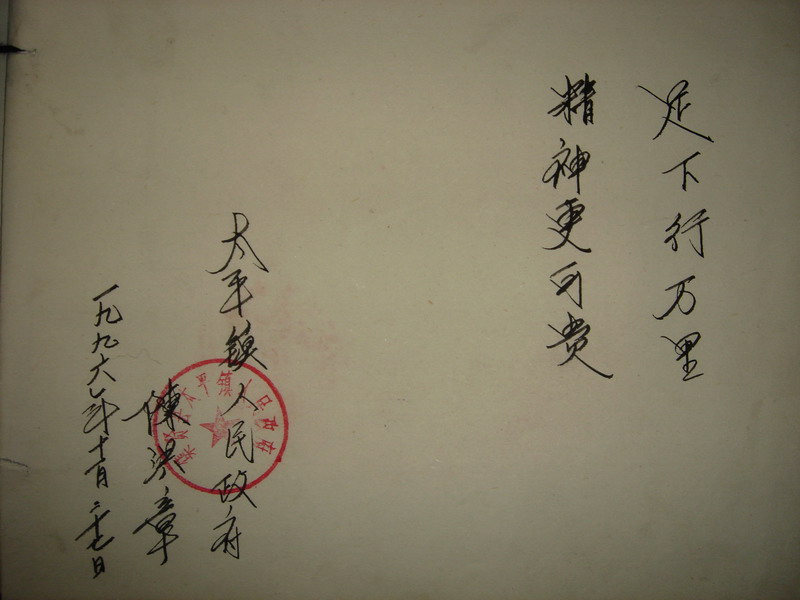 足下行万里
精神更可贵
太平镇人民政府
陈洪章
一九九六年十一月二十七日
太平镇人民政府